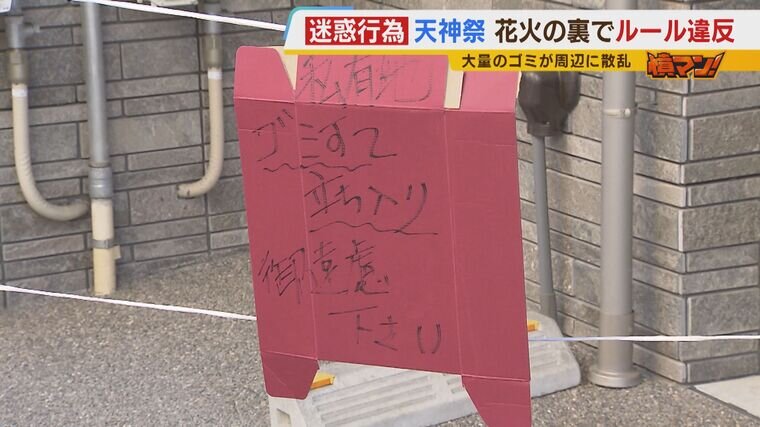 迷惑行為 天神祭 花火の裏でルール違反
大量のゴミが周辺に散乱 憤マン!
私有地
ゴミすて
立ち入り
御遠慮
下さい